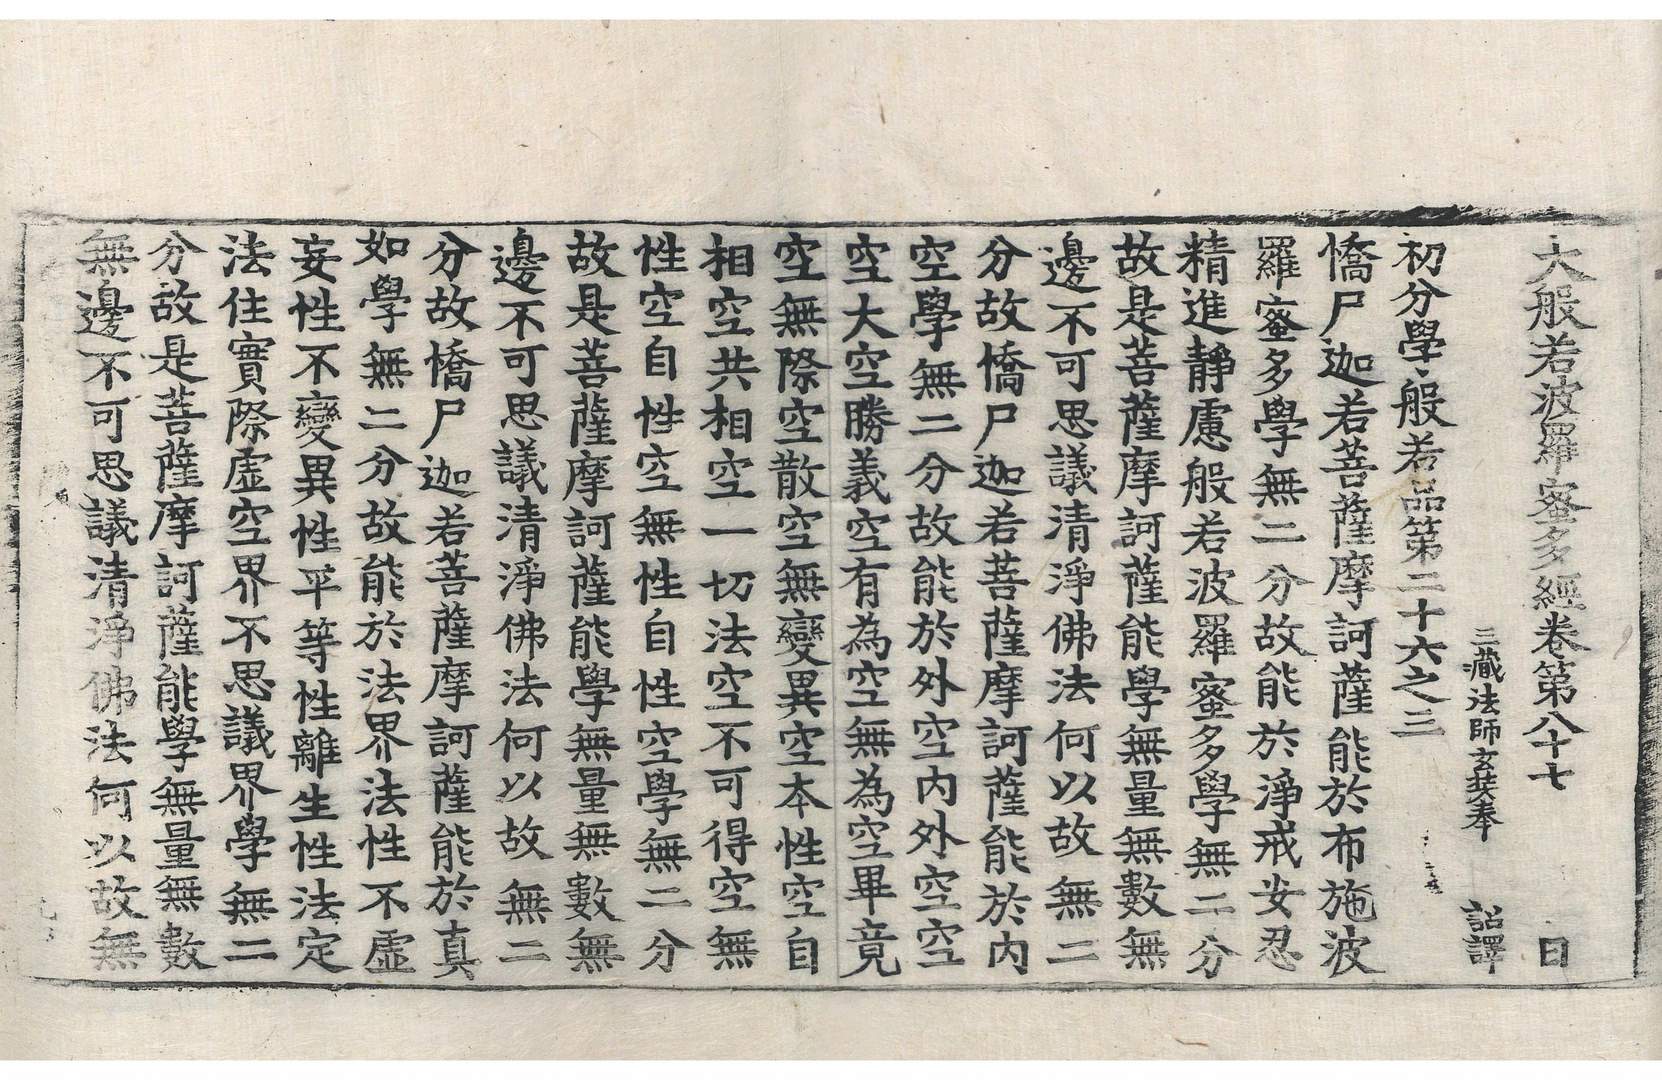 大般若波羅蜜多經卷第八十七　日
三藏法師玄奘奉　詔譯
初分學般若品第二十六之三
憍尸迦若菩薩摩訶薩能於布施波
羅蜜多學無二分故能於淨戒安忍
精進靜慮般若波羅蜜多學無二分
故是菩薩摩訶薩能學無量無數無
邊不可思議清淨佛法何以故無二
分故憍尸迦若菩薩摩訶薩能於內
空學無二分故能於外空內外空空
空大空勝義空有為空無為空畢竟
空無際空散空無變異空本性空自
相空共相空一切法空不可得空無
性空自性空無性自性空學無二分
故是菩薩摩訶薩能學無量無數無
邊不可思議清淨佛法何以故無二
分故憍尸迦若菩薩摩訶薩能於真
如學無二分故能於法界法性不虛
妄性不變異性平等性離生性法定
法住實際虛空界不思議界學無二
分故是菩薩摩訶薩能學無量無數
無邊不可思議清淨佛法何以故無